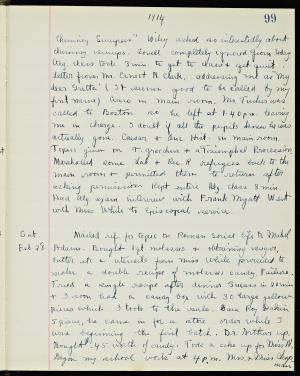 1914
99
Chimney Sweepers" Wiley asked so interestedly about
chimney sweeps. Lovell completely ignored George today
Alg. class took 3 min to get to class & get quiet.
Letter from Mr. Ernest R Clark, addressing me as My
dear Greta" (It seemed good to be called by my
first name) Rec'd in main room. Mr. Tucker was
called to Boston so he left at 1:40 p.m. leaving
me in charge. I doubt if all the pupils knew he was
actually gone. Caesar & Sue Hist in main room.
Topics given on T. Gracchus & a Triumphal Procession.
Marshalled some Lab & Rec. R refugees back to the
main room & permitted them to return after
asking permission Kept entire Alg. class 8 min.
Had Alg exam interview with Frank Myatt Went
with Miss White to Episcopal service.
Sat.
Feb 28
Mailed ref. for topic on Roman Social life to Mabel
Adams. Bought 1 qt molasses & obtaining sugar,
butter etc & utensils from Miss White proceeded to
make a double recipe of molasses candy. Failure.
Tried a single recipe after dinner. Success in 20 min
& I soon had a candy box with 30 large yellow
pieces which I took to the sale. Dana Roy
came in for a
order while I
was beginning the first batch. Dr.
up
Bought .45 worth of candy. Took a cake up for Miss W.
Began my school work at 4 p.m. Miss & Miss